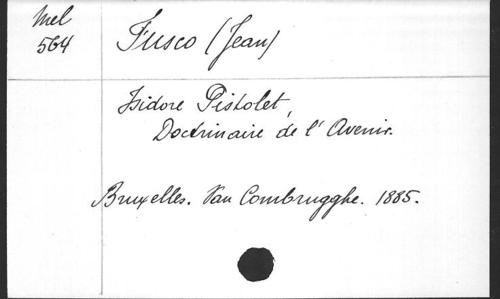 Mel
564
Fusco (Jean)
Isidore Pistolet,
Doctrinaire de l'Avenir.
Bruxelles. Van Combrugghe. 1885.